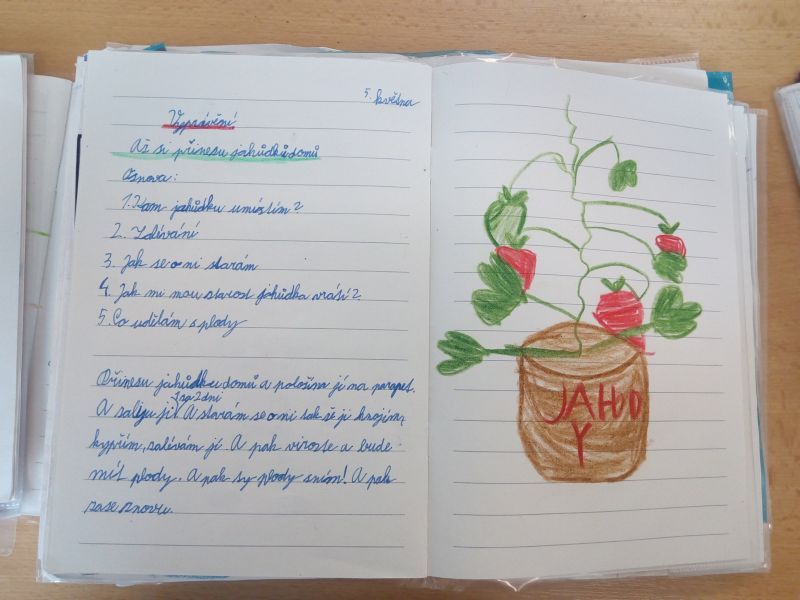 5. května
Vyprávění
Až si přinesu jahůdku domů
Osnova:
1. Kam jahůdku umístím?
2. Zalévání
3. Jak se o ni starám
4. Jak mi mou starost jahůdka vrátí?
5. Co udělám s plody
Přinesu jahůdku domů a položím jí na parapet.
1 za 2 dni
A zaliju ji. A starám se o ni tak že ji hnojím,
kypřím, zalévám jí. A pak viroste a bude
mít plody. A pak ty plody sním! A pak
zase znovu.
JAHOD
Y